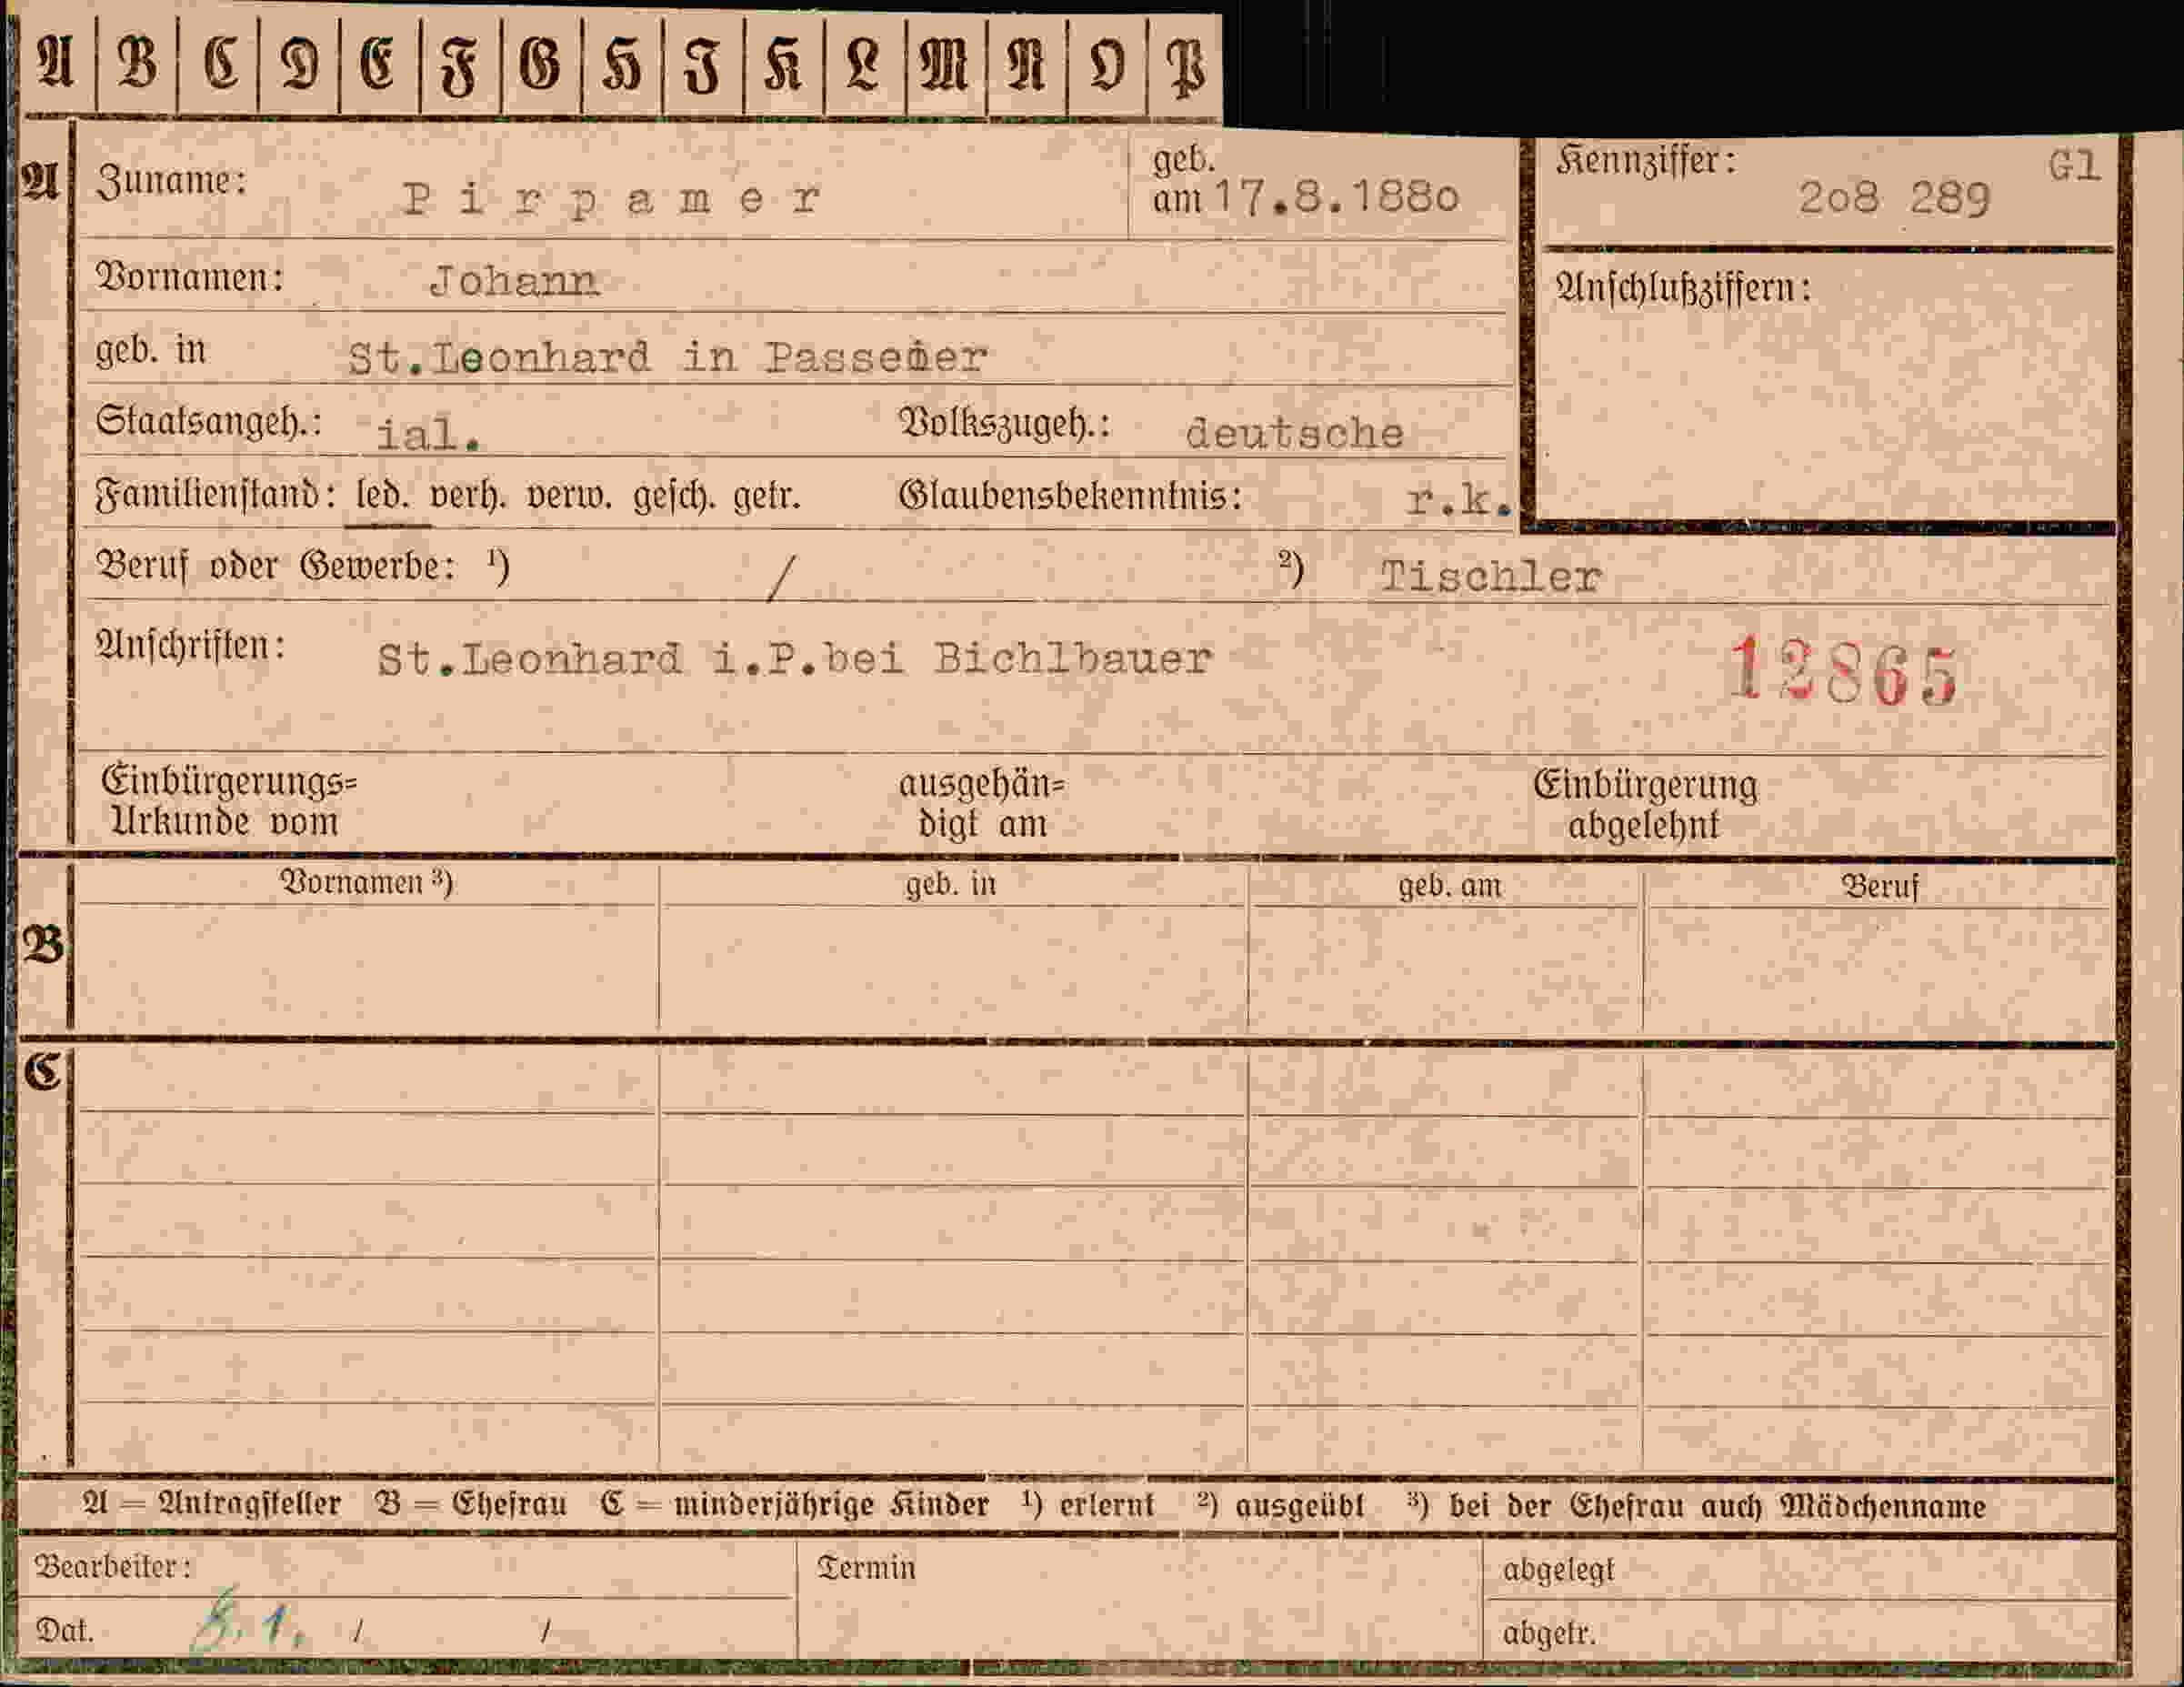 A B C D E F G H I K L M N O P
A Zuname: Pirpamer geb. am 17.8.188o Kennziffer: 2o8 289 Gl
Vornamen: Johann Anschlußziffern:
geb. in St.Leonhard in Passeier
Staatsangeh.: ial. Volkszugeh.: deutsche
Familienstand: led. verh. verw. gesch. getr. Glaubensbekenntnis: r.k.
Beruf oder Gewerbe: ¹) / ²) Tischler
Anschriften: St.Leonhard i.P.bei Bichlbauer 12865
Einbürgerungs= ausgehän= Einbürgerung
Urkunde vom digt am abgelehnt
Vornamen ³) geb. in geb. am Beruf
B
C
A = Antragsteller B = Ehefrau C = minderjährige Kinder ¹) erlernt ²) ausgeübt ³) bei der Ehefrau auch Mädchenname
Bearbeiter: Termin abgelegt
Dat. 1. / / abgetr.